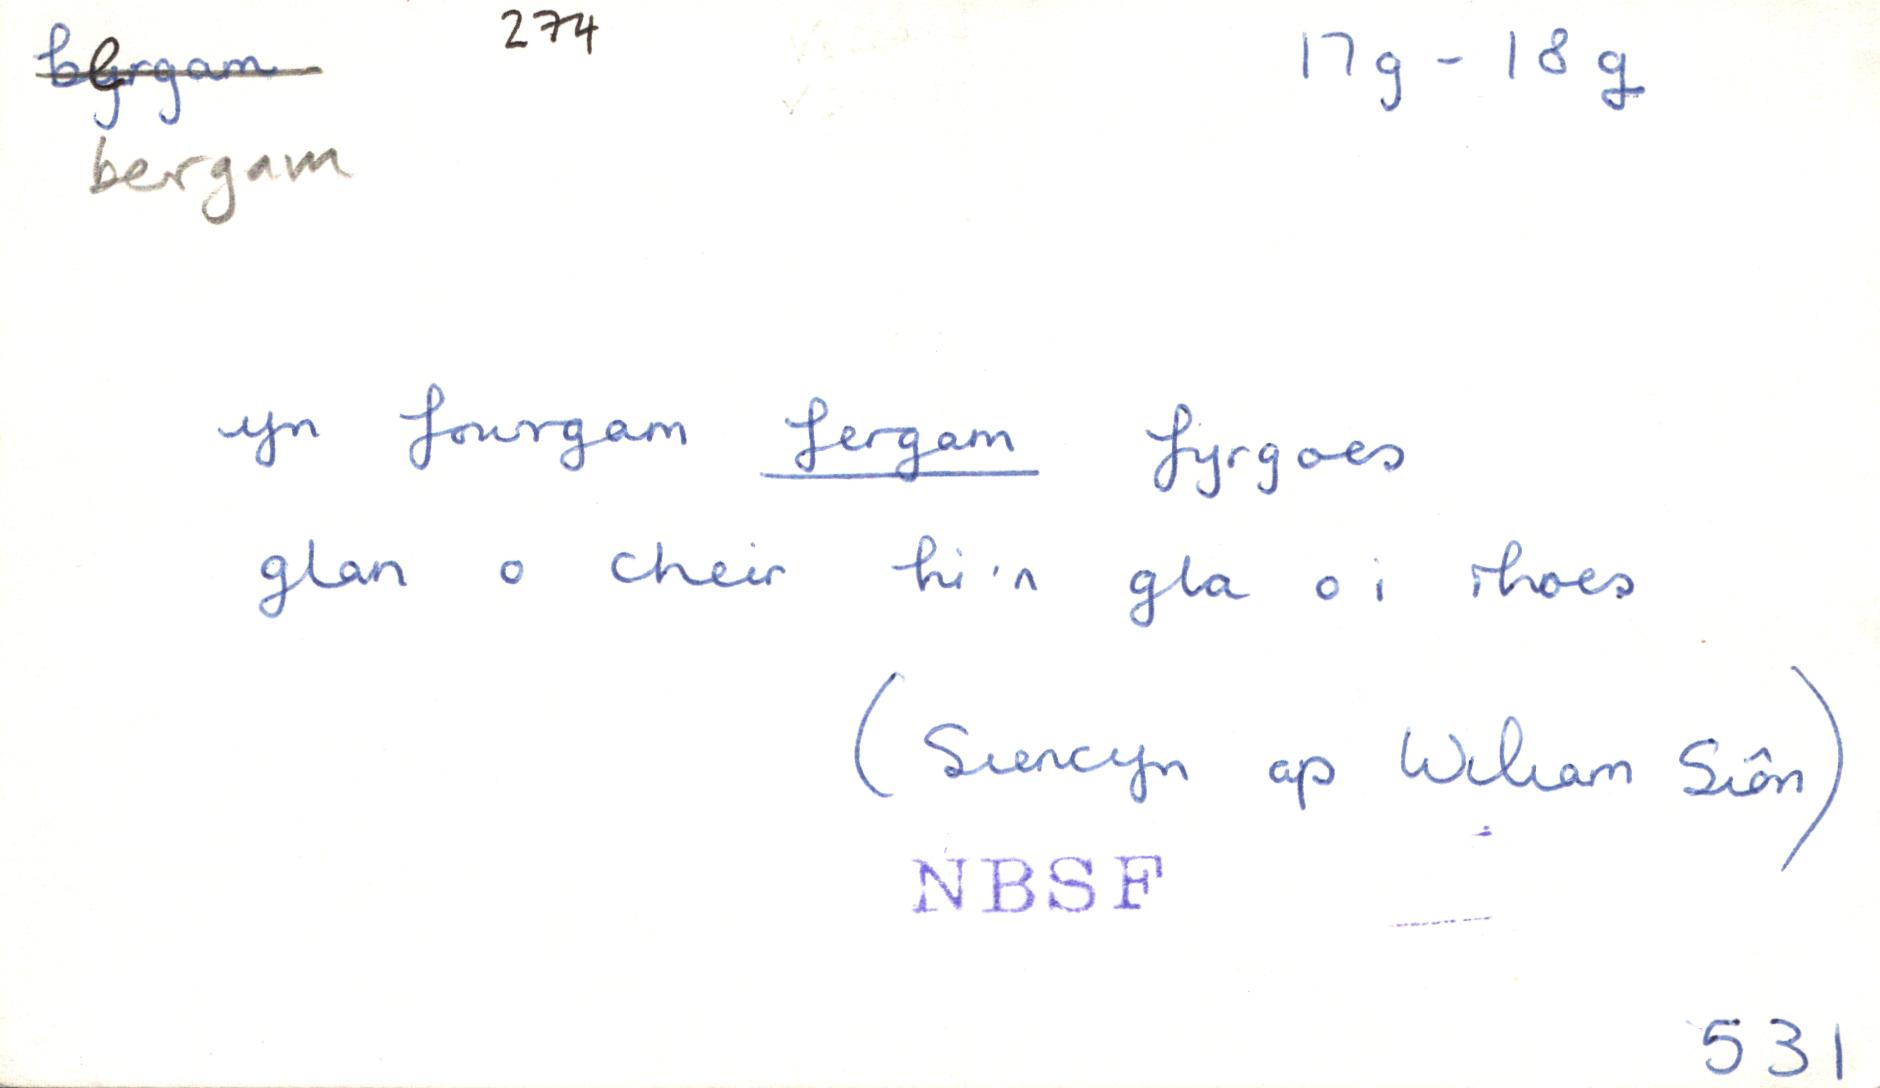 bergam 274 17g - 18g
bergam
yn fowrgam fergam fyrgoes
glan o cheir hi'n gla oi rhoes
(Siencyn ap Wiliam Siôn)
NBSF
531